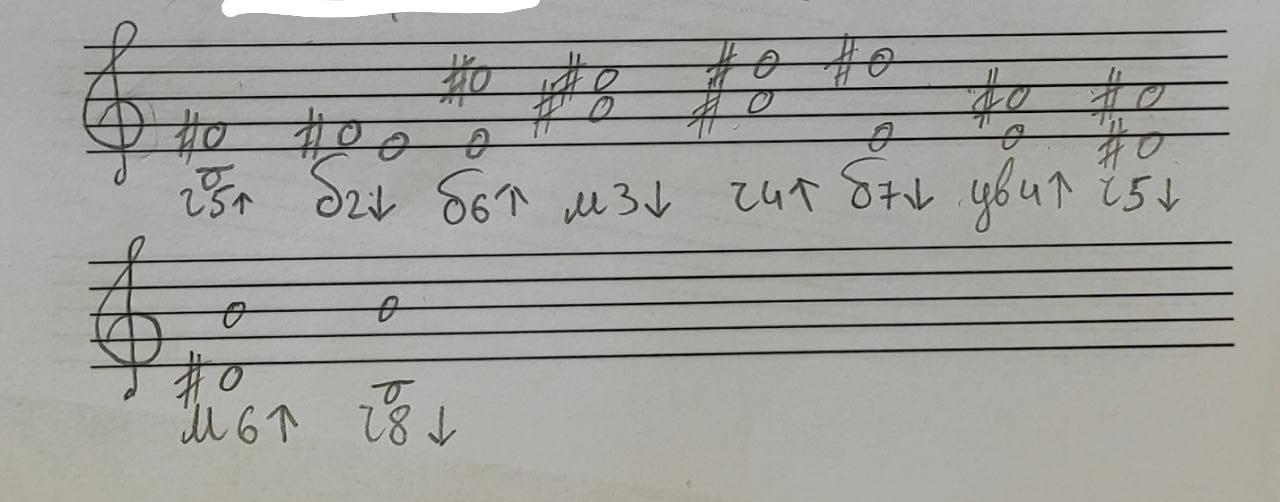 ч5↑ б2↓ б6↑ м3↓ ч4↑ б7↓ ув4↑ ч5↓
м6↑ ч8↓